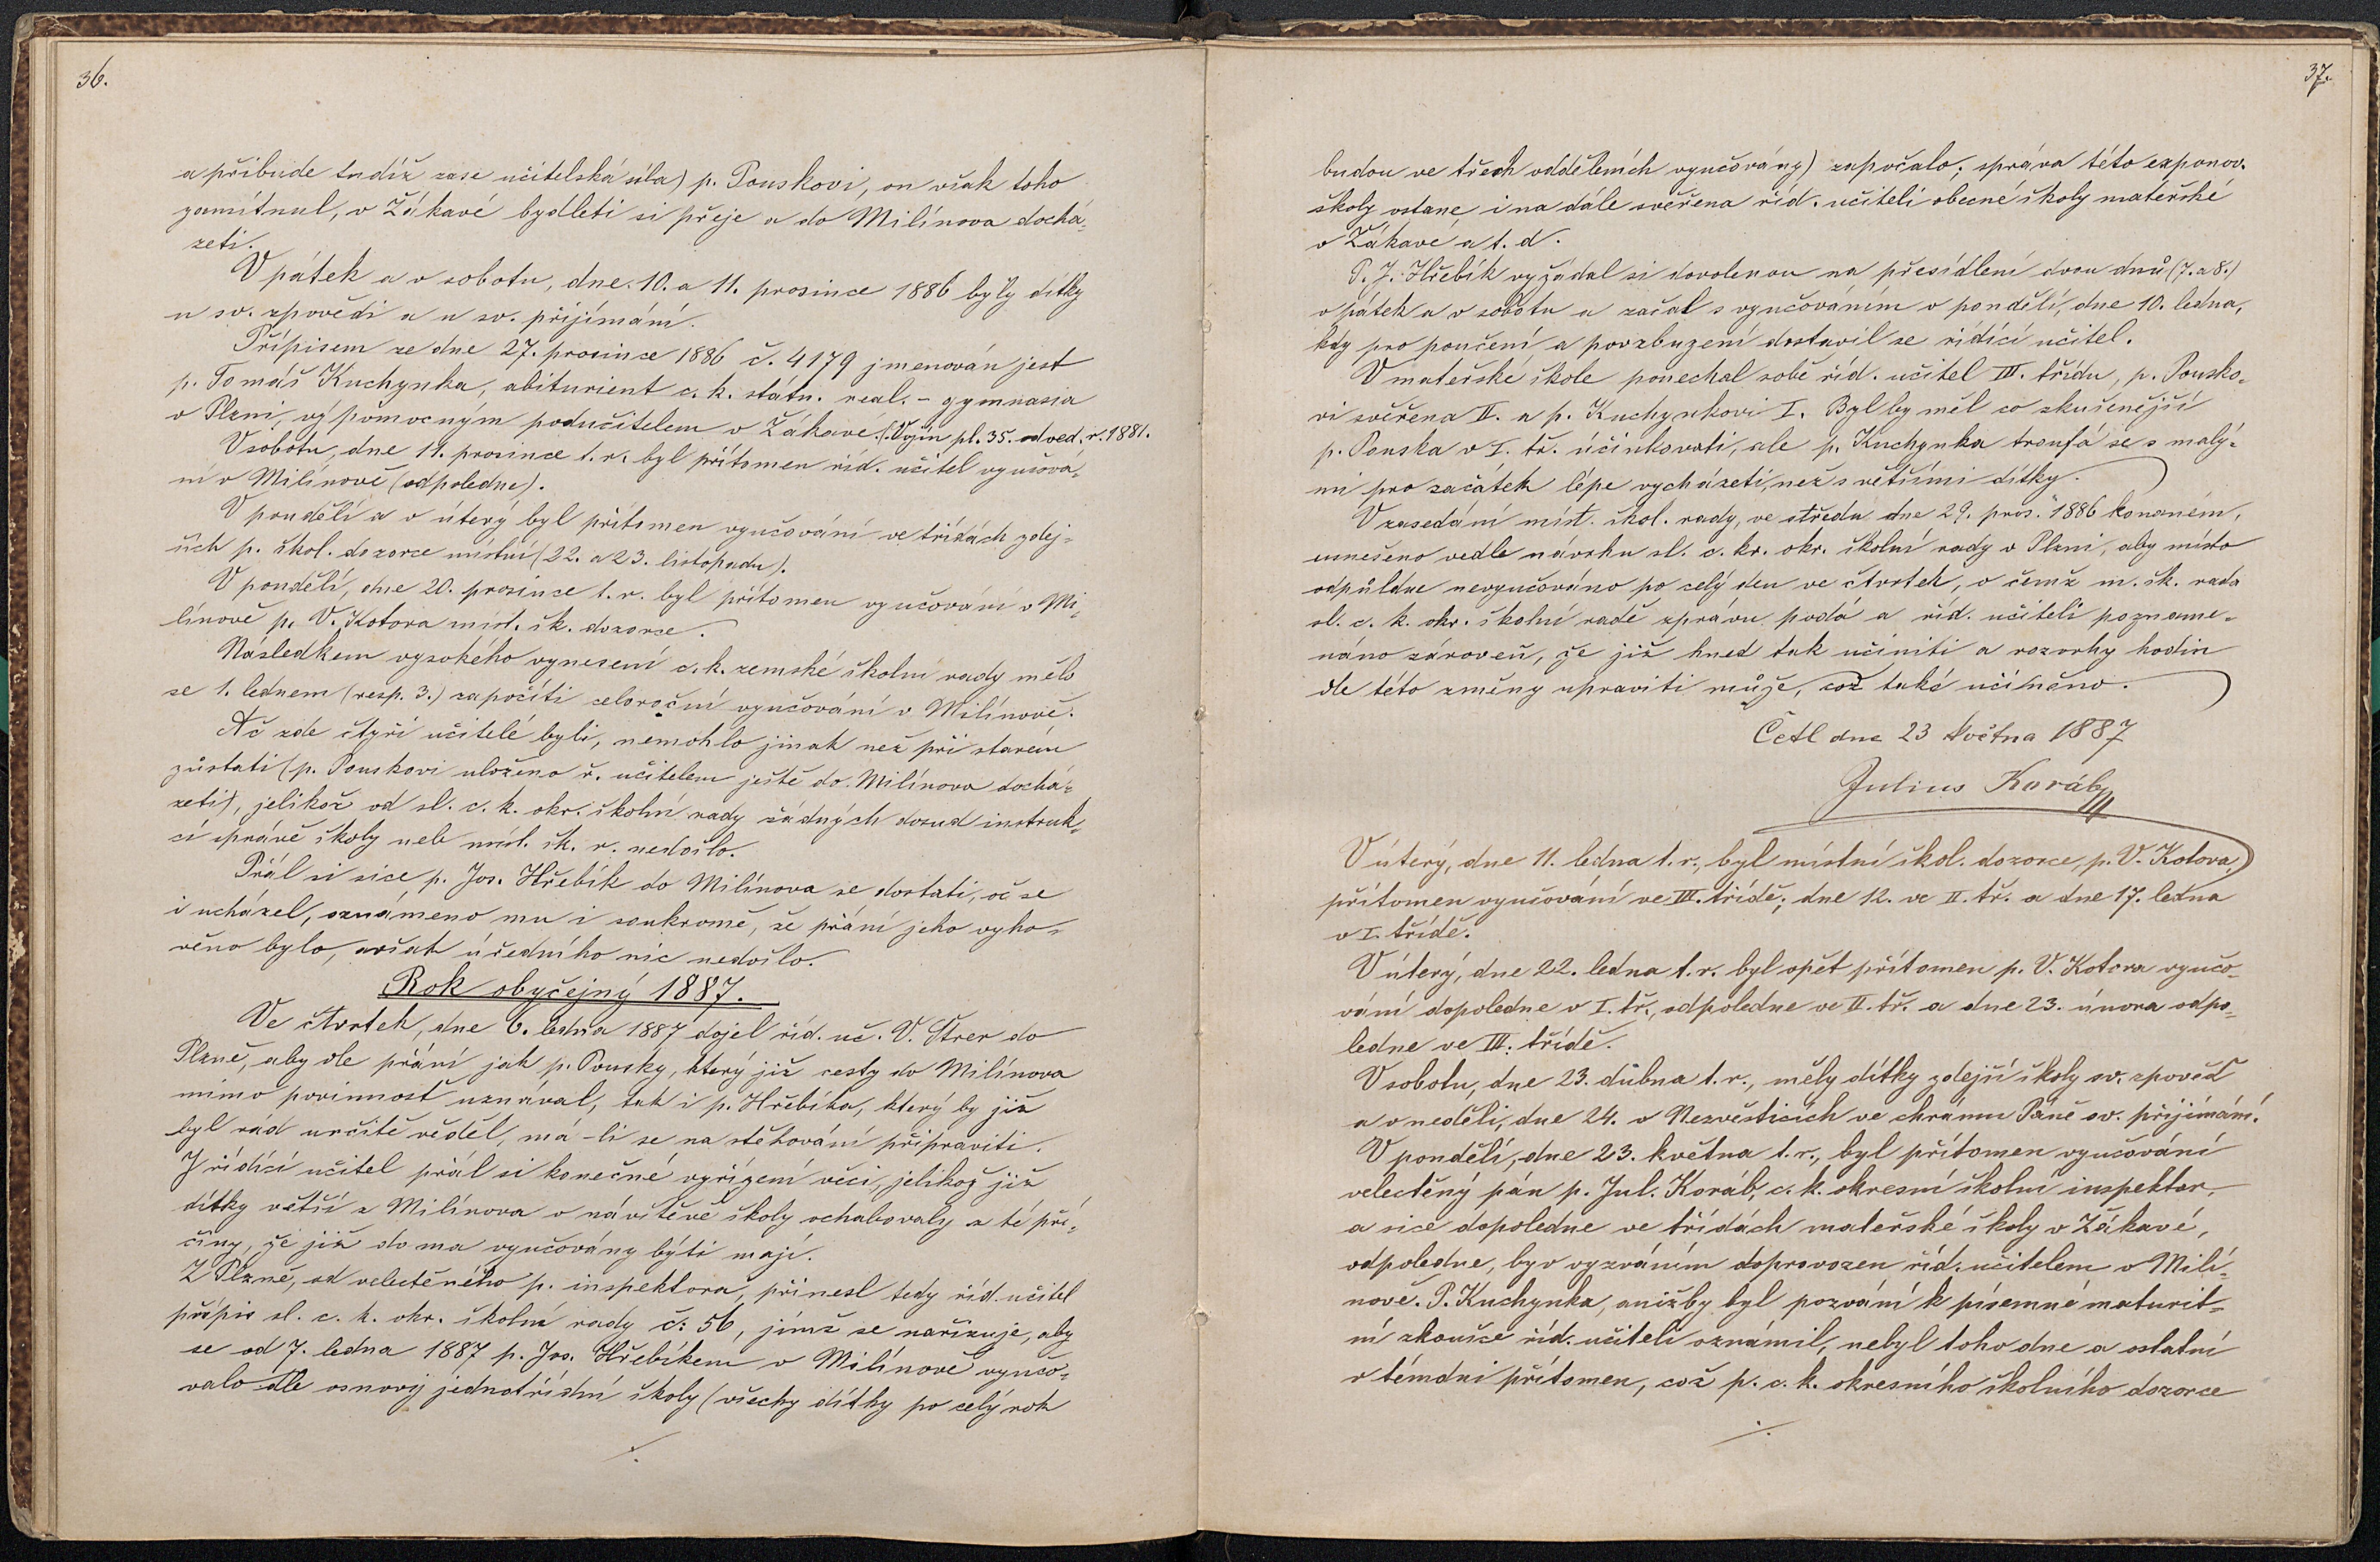 36.
a přibude tudíž zase učitelská síla) p. Pouskovi, on však toho
zamítnul, v Žákavé bydleti si přeje a do Milínova dochá-
zeti.
V pátek a v sobotu, dne 10. a 11. prosince 1886 byly dítky
u sv. zpovědi a u sv. přijímání.
Přípisem ze dne 27. prosince 1886 č. 4179 jmenován jest
p. Tomáš Kuchynka, abiturient c. k. státn. real. - gymnasia
v Plzni, výpomocným podučitelem v Žákavé. (Výn pl. 35. od ved. r. 1881.
V sobotu, dne 11. prosince t. r. byl přítomen říd. učitel vyučová-
ní v Milínově (odpoledne).
V pondělí a v úterý byl přítomen vyučování ve třídách zdej-
ších p. škol. dozorce místní (22. a 23. listopadu).
V pondělí, dne 20. prosince t. r. byl přítomen vyučování v Mi-
línově p. V. Kotora míst. šk. dozorce.
Následkem vysokého vynesení c. k. zemské školní rady mělo
se 1. lednem (resp. 3.) započíti celoroční vyučování v Milínově.
Ač zde čtyři učitelé byli, nemohlo jinak než při starém
zůstati (p. Pouskovi uloženo ř. učitelem ještě do Milínova dochá-
zeti), jelikož od sl. c. k. okr. školní rady žádných dosud instruk-
cí správě školy neb míst. šk. r. nedošlo.
Přál si sice p. Jos. Hřebík do Milínova se dostati, oč se
i ucházel, oznámeno mu i soukromě, že přání jeho vyho-
věno bylo, avšak úředního nic nedošlo.
Rok obyčejný 1887.
Ve čtvrtek, dne 6. ledna 1887 dojel říd. uč. V. Štrer do
Plzně, aby dle přání jak p. Pousky, který již cesty do Milínova
mimo povinnosť uznával, tak i p. Hřebíka, který by již
byl rád určitě věděl, má-li se na stěhování připraviti.
I řídící učitel přál si konečné vyřízení věci, jelikož již
dítky větší z Milínova v návštěvě školy ochabovaly z té pří-
činy, že již doma vyučovány býti mají.
Z Plzně, od velectěného p. inspektora, přinesl tedy říd. učitel
přípis sl. c. k. okr. školní rady č: 56, jímž se nařizuje, aby
se od 7. ledna 1887 p. Jos. Hřebíkem v Milínově vyučo-
valo dle osnovy jednotřídní školy (všechy dítky po celý rok
./.
37.
budou ve třech odděleních vyučovány) započalo; správa této exponov.
školy ostane i na dále svěřena říd. učiteli obecné školy mateřské
v Žákavé a t. d.
P. J. Hřebík vyžádal si dovolenou na přesídlení dvou dnů (7. a 8.)
v pátek a v sobotu a začal s vyučováním v pondělí, dne 10. ledna,
kdy pro poučení a povzbuzení dostavil se řídící učitel.
V mateřské škole ponechal sobě říd. učitel III. třídu, p. Pousko-
vi svěřena II. a p. Kuchynkovi I. Byl by měl co zkušenější
p. Pouska v I. tř. účinkovati, ale p. Kuchynka troufá se s malý-
mi pro začátek lépe vycházeti, než s většími dítky.
V zasedání míst. škol. rady, ve středu dne 29. pros. 1886 konaném,
usnešeno vedle návrhu sl. c. kr. okr. školní rady v Plzni, aby místo
odpůldne nevyučováno po celý den ve čtvrtek, o čemž m. šk. rada
sl. c. k. okr. školní radě zprávu podá a říd. učiteli pozname-
náno zároveň, že již hned tak učiniti a rozvrhy hodin
dle této změny upraviti může, což také učiněno.
Četl dne 23 května 1887
Julius Koráb
V úterý, dne 11. ledna t. r., byl místní škol. dozorce, p. V. Kotora,
přítomen vyučování ve III. třídě; dne 12. ve II. tř. a dne 17. ledna
v I. třídě.
V úterý, dne 22. ledna t. r. byl opět přítomen p. V. Kotora vyučo-
vání dopoledne v I. tř., odpoledne ve II. tř. a dne 23. února odpo-
ledne ve III. třídě.
V sobotu, dne 23. dubna t. r., měly dítky zdejší školy sv. zpověď
a v neděli, dne 24. v Nezvěsticích ve chrámu Páně sv. přijímání.
V pondělí, dne 23. května t. r., byl přítomen vyučování
velectěný pán p. Jul. Koráb, c. k. okresní školní inspektor,
a sice dopoledne ve třídách mateřské školy v Žákavé,
odpoledne, byv vyzváním doprovozen říd. učitelem v Milí-
nově. P. Kuchynka, anižby byl pozvání k písemné maturit-
ní zkoušce říd. učiteli oznámil, nebyl toho dne a ostatní
v témdni přítomen, což p. c. k. okresního školního dozorce
./.